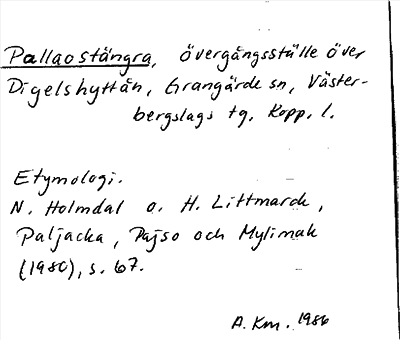 Pallaostängra, övergångsställe över
Digelshyttån, Grangärde sn, Väster-
bergslags tg, Kopp. l.
Etymologi.
N. Holmdal o. H. Littmarck,
Paljacka, Pajso och Mylimak
(1980), s. 67.
A. Km. 1986